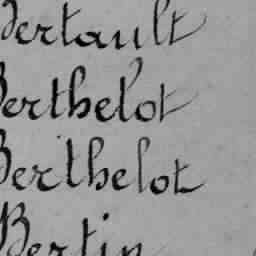 Bertault
Berthelot
Berthelot
Bertin